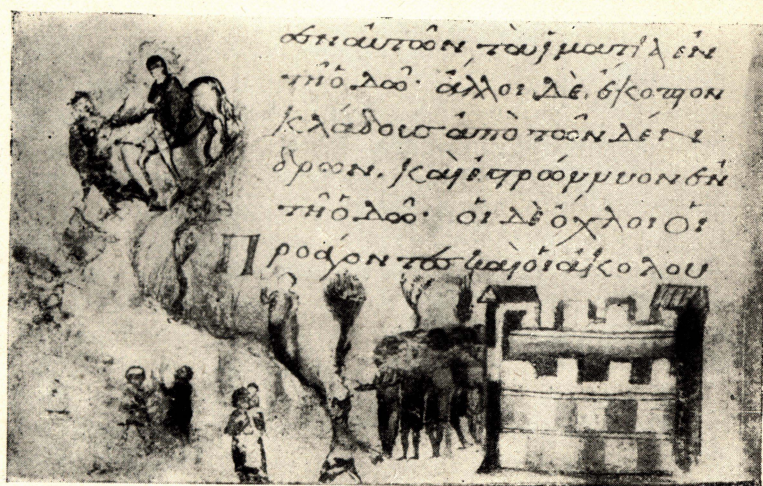 σεν αὐτῶν τὰ ἱμάτια ἐν
τῆ ὁδῶ· ἄλλοι δὲ, ἔκοπτον
κλάδους ἀπὸ τῶν δέν
δρων, καὶ ἐστρώννυον ἐν
τῆ ὁδῶ· οἱ δὲ ὄχλοι οἱ
Προάγοντες καὶ οἱ ἀκολου